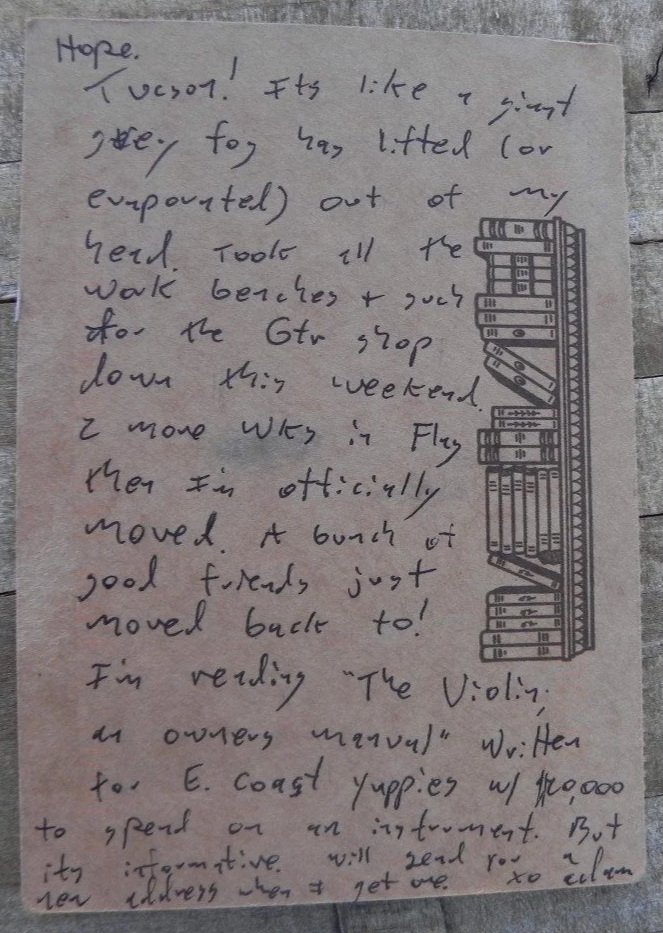 Hope.
Tucson! Its like a giant
grey fog has lifted (or
evaporated) out of my
head. Took all the
work benches + such
for the Gtr shop
down this weekend.
2 more wks in Flag
then Im officially
moved. A bunch of
good friends just
moved back to!
Im reading "The Violin;
an owners manual" written
for E. Coast yuppies w/ $20,000
to spend on an instrument. But
its informative. will send you a
new address when I get one. xo adam